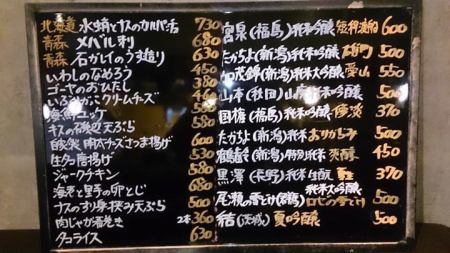 北海道 水蛸とナスのカルパッチョ 730
青森 メバル刺 680
青森 石ガレイのうす造り 630
いわしのなめろう 450
ゴーヤのおひたし 380
クリームチーズ
海鮮ユッケ 580
キスの磯辺天ぷら 580
自家製 チーズさつま揚げ 600
生タコ唐揚げ 530
ジャークチキン 580
海老と野の卵とじ 680
ナスのすり身挟み天ぷら 500
肉じゃが春巻き 2本 360
タコライス 630
宮泉(福島)純米吟醸 短稈渡船 600
たかちよ(新潟)純米吟醸 雄町 550
加茂錦(新潟)純米大吟醸 愛山 550
山本(秋田)山廃純米吟醸 500
国権(福島)純米吟醸 370
たかちよ(新潟)純米 おりがらみ 500
鶴齢(新潟)特別純米 爽醇 450
黒澤(長野)純米 生酛 370
尾瀬の雪どけ 純米大吟醸 500
結(茨城)夏吟醸 500